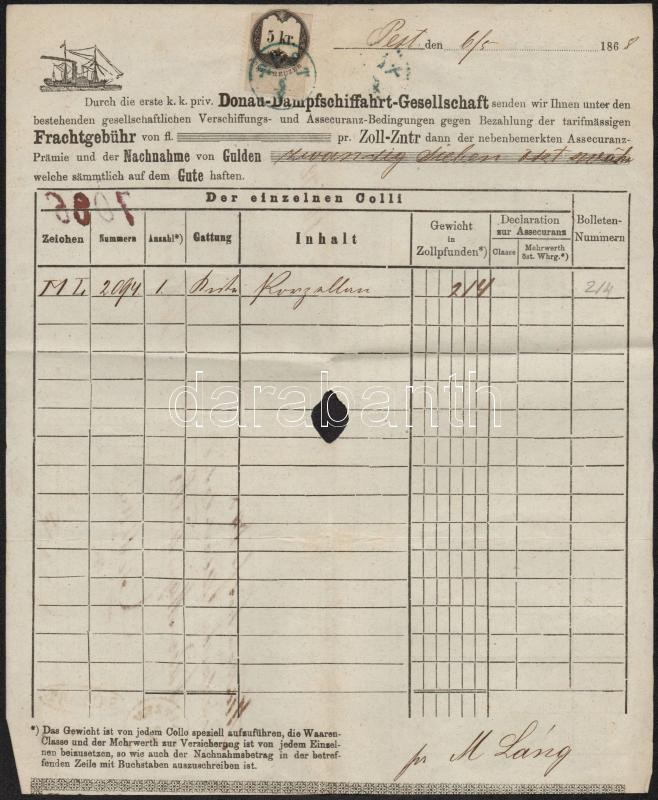 5 kr.
Pest den 6/5 1868
Durch die erste k. k. priv. Donau-Dampfschiffahrt-Gesellschaft senden wir Ihnen unter den
bestehenden gesellschaftlichen Verschiffungs- und Assecuranz-Bedingungen gegen Bezahlung der tarifmässigen
Frachtgebühr von fl. pr. Zoll-Zntr dann der nebenbemerkten Assecuranz-
Prämie und der Nachnahme von Gulden zwanzig sieben öst
welche sämmtlich auf dem Gute haften.
Der einzelnen Colli
Zeichen Nummern Anzahl*) Gattung Inhalt Gewicht in Zollpfunden*) Declaration zur Assecuranz Classe Mehrwerth öst. Whrg.*) Bolleten-Nummern
ML 2094 1. Kiste Porzellan 214 214
darabanth
*) Das Gewicht ist von jedem Collo speziell aufzuführen, die Waaren-
Classe und der Mehrwerth zur Versicherung ist von jedem Einzel-
nen beizusetzen, so wie auch der Nachnahmsbetrag in der betref-
fenden Zeile mit Buchstaben auszuschreiben ist.
pr M Láng